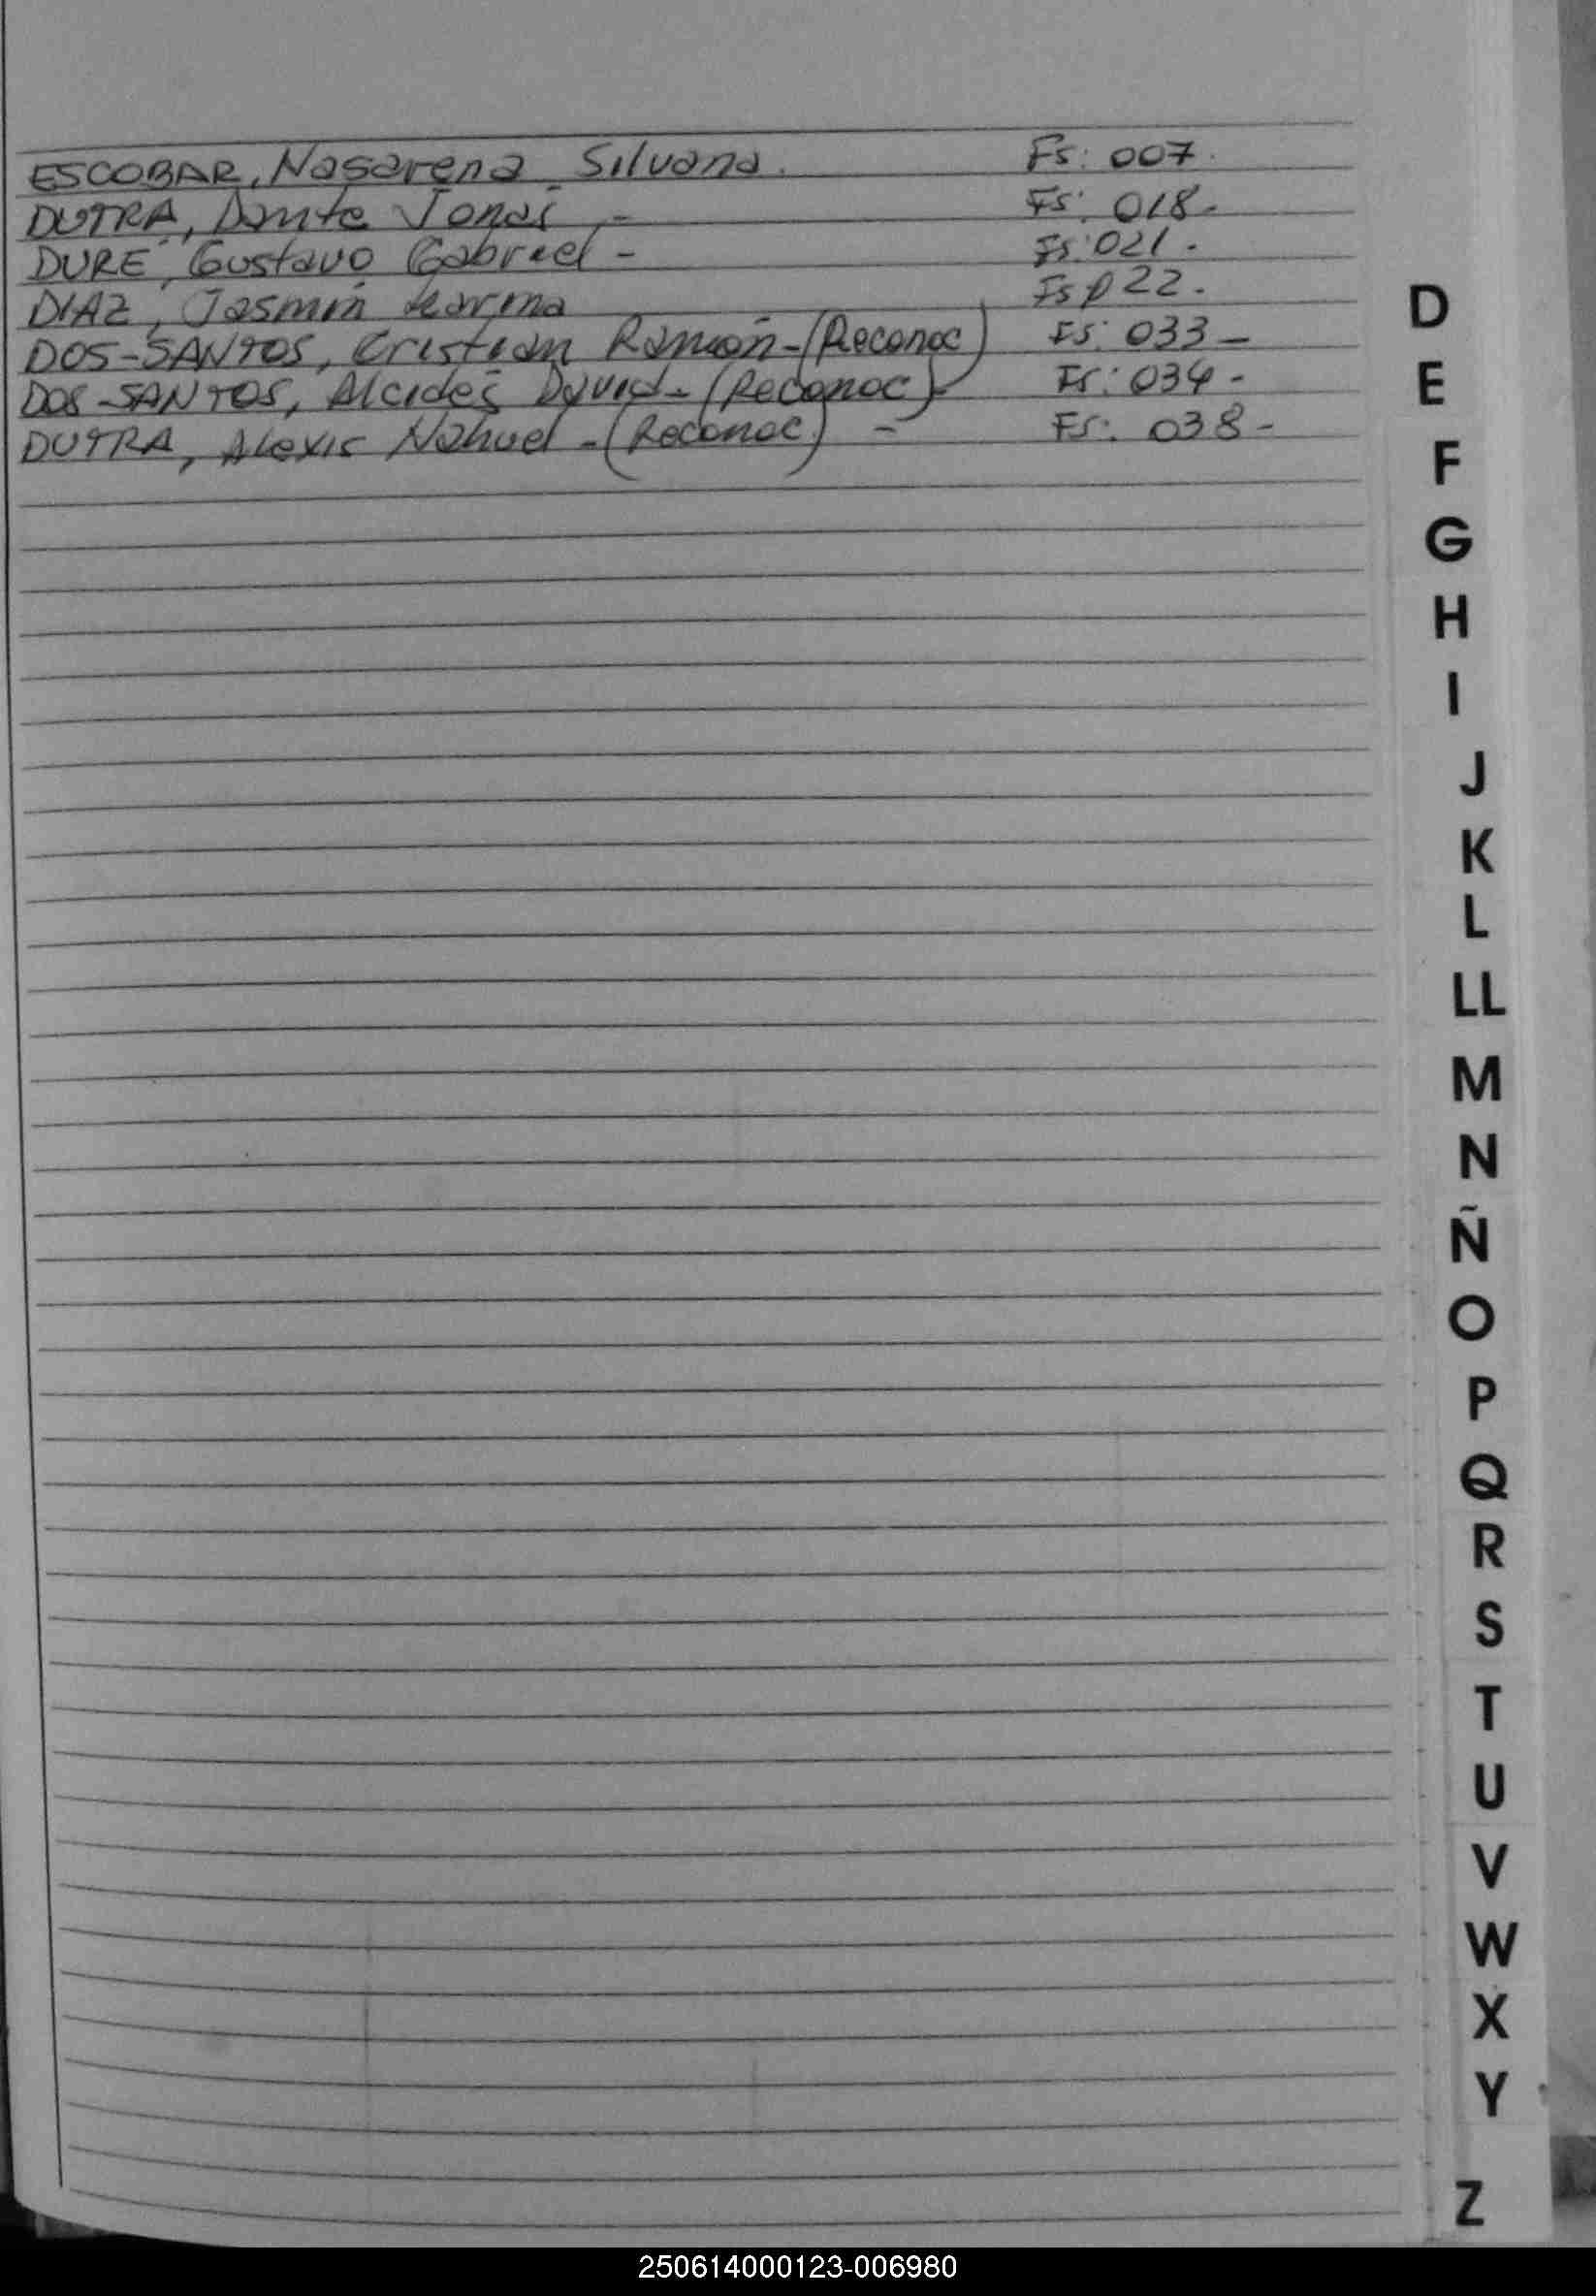 ESCOBAR, Nasarena Silvana. Fs: 007.
DUTRA, Dante Jonas - Fs: 018-
DURE, Gustavo Gabriel - Fs: 021.
DIAZ, Jasmin Karina Fs 022.
DOS-SANTOS, Cristian Ramón-(Reconoc) Fs: 033-
DOS-SANTOS, Alcides David-(Reconoc)- Fs: 034-
DUTRA, Alexis Nahuel-(Reconoc) - Fs: 038-
D
E
F
G
H
I
J
K
L
LL
M
N
Ñ
O
P
Q
R
S
T
U
V
W
X
Y
Z
250614000123-006980